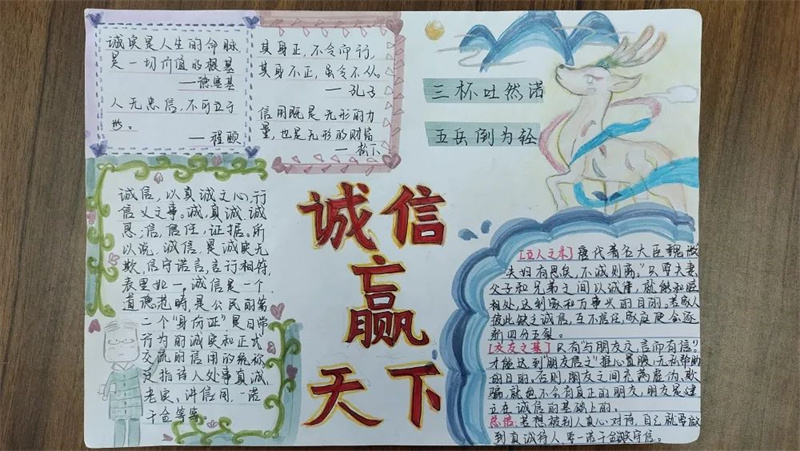 诚实是人生的命脉
是一切价值的根基
——德莱基
人无忠信,不可立于
世。
——程颐
其身正,不令而行,
其身不正,虽令不从。
——孔子
信用既是无形的力
量,也是无形的财富
——松下
三杯吐然诺
五岳倒为轻
诚信,以真诚之心,行
信义之事。诚,真诚,诚
恳;信,信任,证据。所
以说,诚信,是诚实无
欺,信守诺言,言行相符,
表里如一,诚信是一个
道德范畴,是公民的第
二个"身份证"是日常
行为的诚实和正式
交流的信用的统称
泛指待人处事真诚、
老实、讲信用,一诺
千金等等。
诚信
赢
天下
唐代著名大臣魏徵
夫妇有恩矣,不诚则离,只要夫妻、
父子和兄弟之间以诚信
相处,达到家和万事兴的目的,若家人
彼此缺乏诚信,互不信任,家庭便会逐
渐四分五裂。
[交友之基]只有"与朋友交,言而有信",
才能达到"朋友信之"推心置腹、无私帮助
的目的,否则,朋友之间充满虚伪、欺
骗,就绝不会有真正的朋友,朋友是建
立在诚信的基础上的。
总结:若想被别人真心对待,自己就要做
到真诚待人,